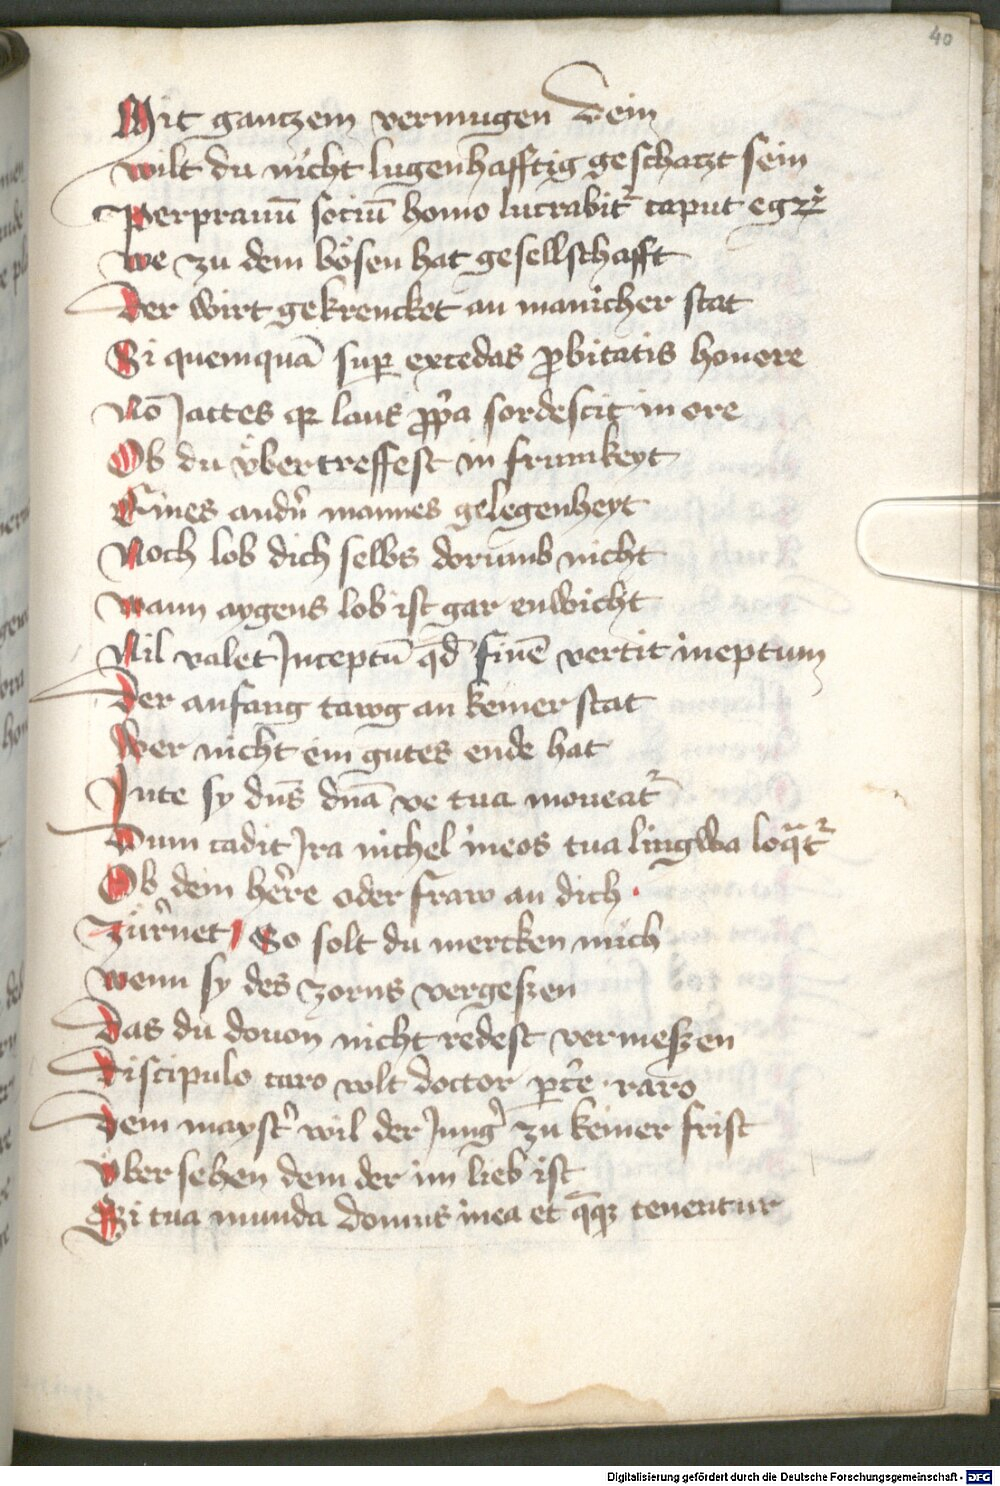 40
Mit gantzem vermugen dein
wilt du nicht lugenhafftig geschatzt sein
Per prauū sociū homo lucrabit᷑ caput egrū
we zu dem bösen hat gesellschafft
Der wirt gekrencket an manicher stat
Si quemquā sup excedas pbitatis honore
Nō Jactes qz laus ppa sordescit in ore
Ob du v̈bertreffest in frumkeyt
Eines andrn mannes gelegenheyt
Noch lob dich selbs dorumb nicht
wann aygens lob ist gar enwicht
Nil valet Jnceptū qd finē vertit ineptum
Der anfang tawg an keiner stat
Der nicht ein gutes ende hat
Jn te sy dns dna ve tua moueat᷑
Dum cadit Jra nichel meos tua lingwa loqt᷑
Ob dein herre oder fraw an dich
Zürnet / So solt du mercken mich
wenn sy des zorns vergeszen
Das du douon nicht redest vermeszen
Discipulo caro volt doctor pcere raro
Dem mayster wil der Junger zu keiner frist
Vber sehen dem der im lieb ist
Si tua munda domus mea et qqz tenentur
Digitalisierung gefördert durch die Deutsche Forschungsgemeinschaft - DFG